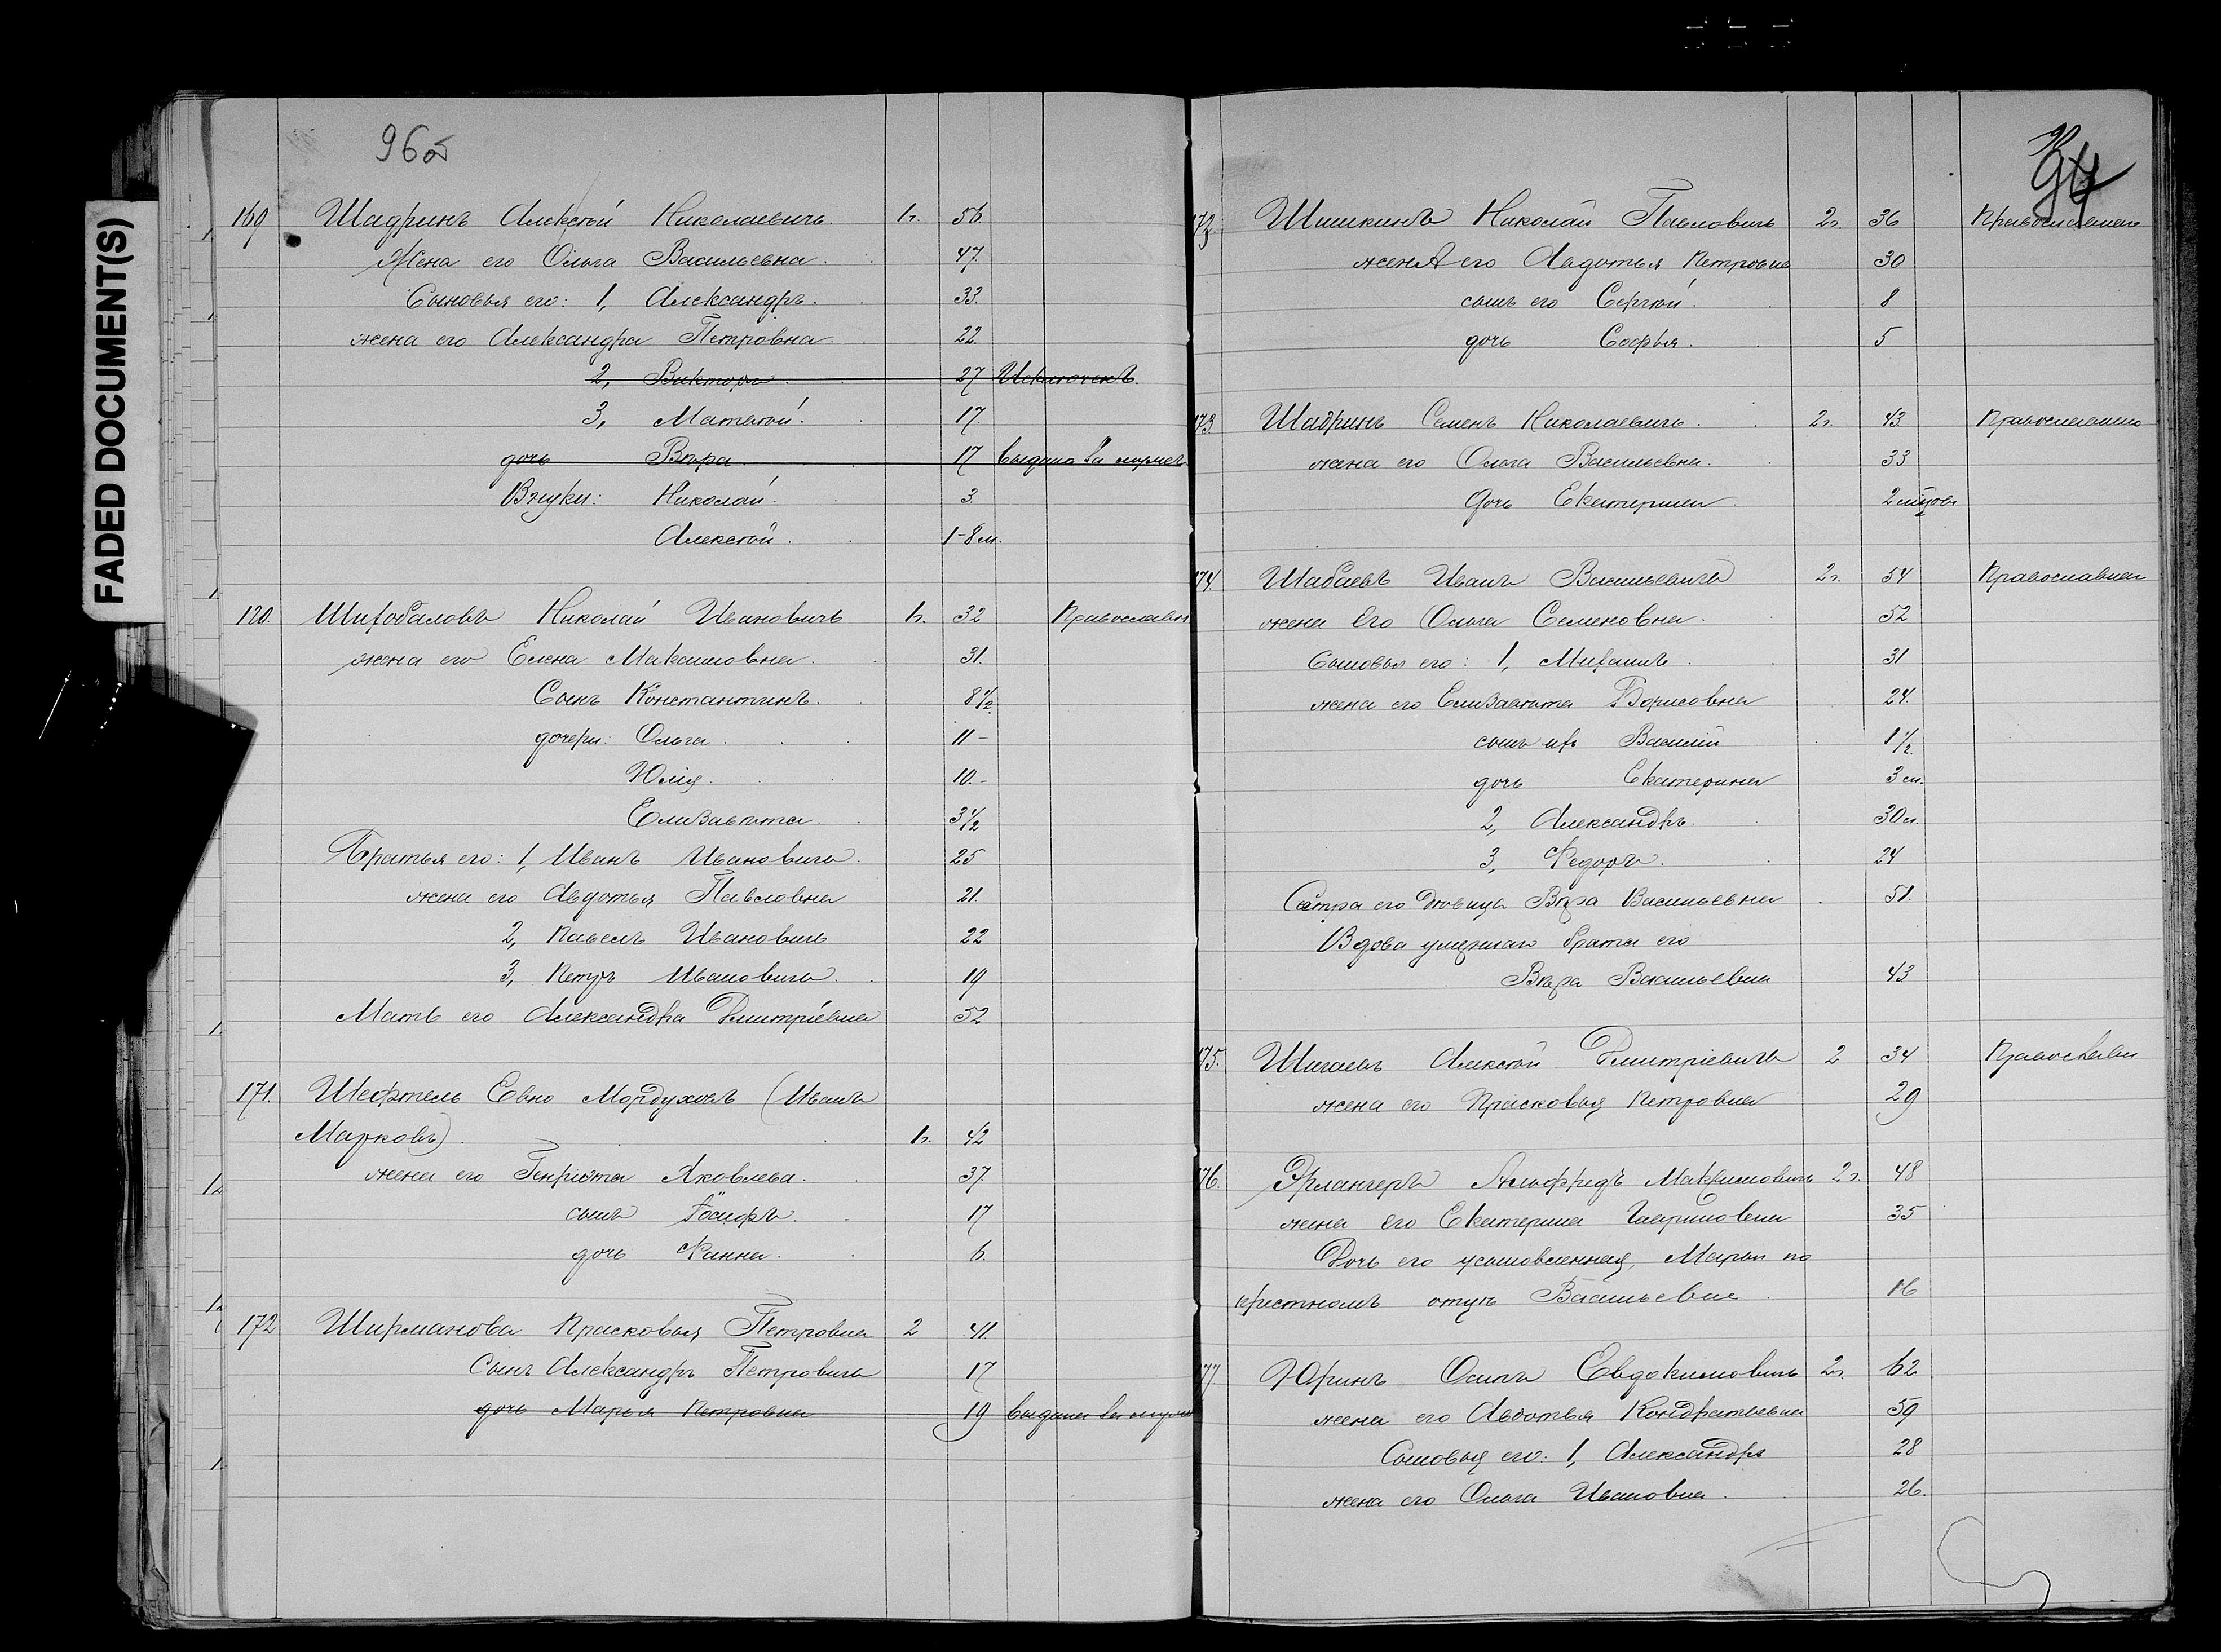 FADED DOCUMENT(S)
96об
169 Шадринъ Алексѣй Николаевичъ 1г. 56
Жена его Ольга Васильевна 47
Сыновья его: 1, Александръ 33
жена его Александра Петровна 22
2, Викторъ 27 Исключенъ
3, Матвѣй 17
дочь Вѣра 17 выдана за мужъ
Внуки: Николай 3
Алексѣй 1-8 м.
170. Шихобаловъ Николай Ивановичъ 1г. 32 Православн
жена его Елена Максимовна 31.
Сынъ Константинъ 8 1/2
дочери: Ольга 11 -
Юлія 10. -
Елизавета 3 1/2
Братья его: 1, Иванъ Ивановичъ 25
жена его Авдотья Павловна 21.
2, Павелъ Ивановичъ 22
3, Петръ Ивановичъ 19
Мать его Александра Дмитріевна 52
171. Шефтель Евно Мордуховъ (Иванъ
Марковъ) 1г. 42
жена его Генріэта Яковлева 37.
сынъ Іосифъ 17
дочь Фанна 6.
172 Ширманова Прасковья Петровна 2 41.
Сынъ Александръ Петровичъ 17
дочь Марья Петровна 19 выдана за мужъ
97
172. Шишкинъ Николай Павловичъ 2г. 36 Православные
женА его Авдотья Петровна 30
сынъ его Сергѣй 8
дочь Софья 5
173. Шадринъ Семенъ Николаевичъ 2г. 43 Православные
жена его Ольга Васильевна 33
дочь Екатерина
174. Шабаевъ Иванъ Васильевичъ 2г. 54 Православные
жена Его Ольга Семеновна 52
Сыновья его: 1, Михаилъ 31
жена его Елизавета Борисовна 24.
сынъ ихъ Василій 1 1/2
дочь Екатерина 3 м.
2, Александръ 30
3, Федоръ 24
Сестра его Вѣра Васильевна 51.
Вдова умершаго брата его
Вѣра Васильевна 43
175. Шигаевъ Алексѣй Дмитріевичъ 2 34 Православн
жена его Прасковья Петровна 29
176. Эрлангеръ Альфредъ Максимовичъ 2г. 48
жена его Екатерина 35
Дочь его усыновленная, Марья по
крестному отцу Васильевна 16
177 Юринъ Осипъ Евдокимовичъ 2г. 62
жена его Авдотья Кондратьевна 59
Сыновья его: 1, Александръ 28
жена его Ольга Ивановна 26.